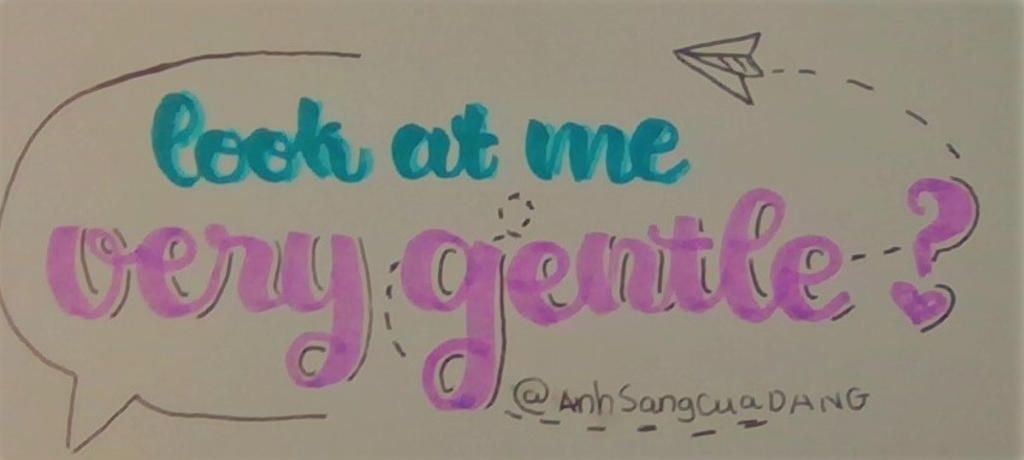 look at me
very gentle?
@AnhSangcuaDANG